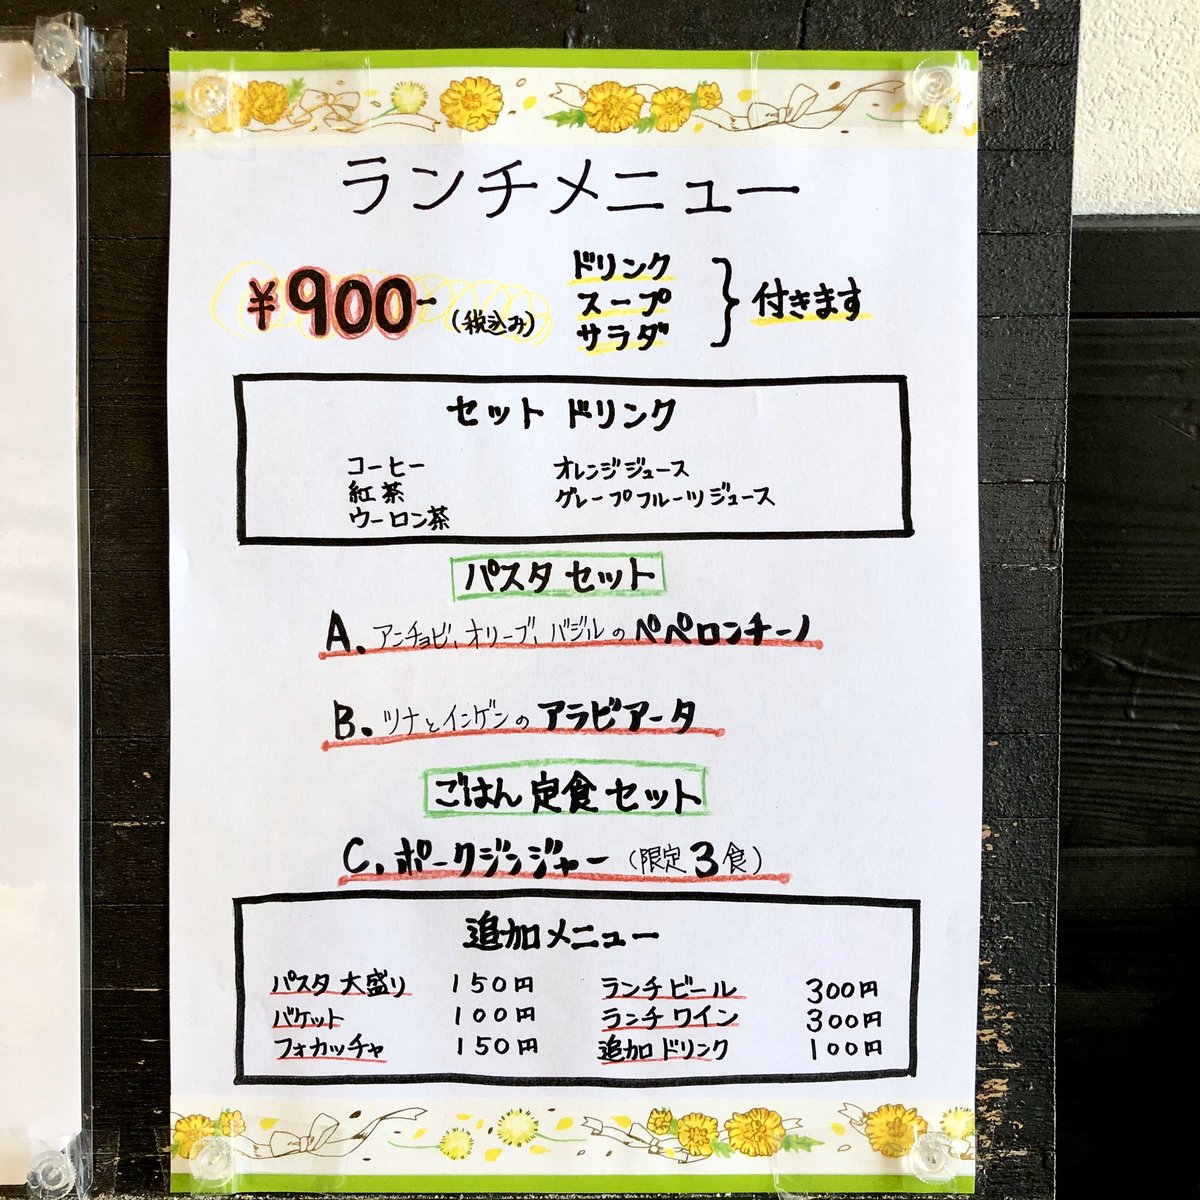 ランチメニュー
¥900-(税込み)
ドリンク
スープ
サラダ
付きます
セットドリンク
コーヒー
紅茶
ウーロン茶
オレンジジュース
グレープフルーツジュース
パスタセット
A. アンチョビ、オリーブ、バジルのペペロンチーノ
B. ツナとインゲンのアラビアータ
ごはん定食セット
C. ポークジンジャー (限定3食)
追加メニュー
パスタ大盛り 150円
バケット 100円
フォカッチャ 150円
ランチビール 300円
ランチワイン 300円
追加ドリンク 100円